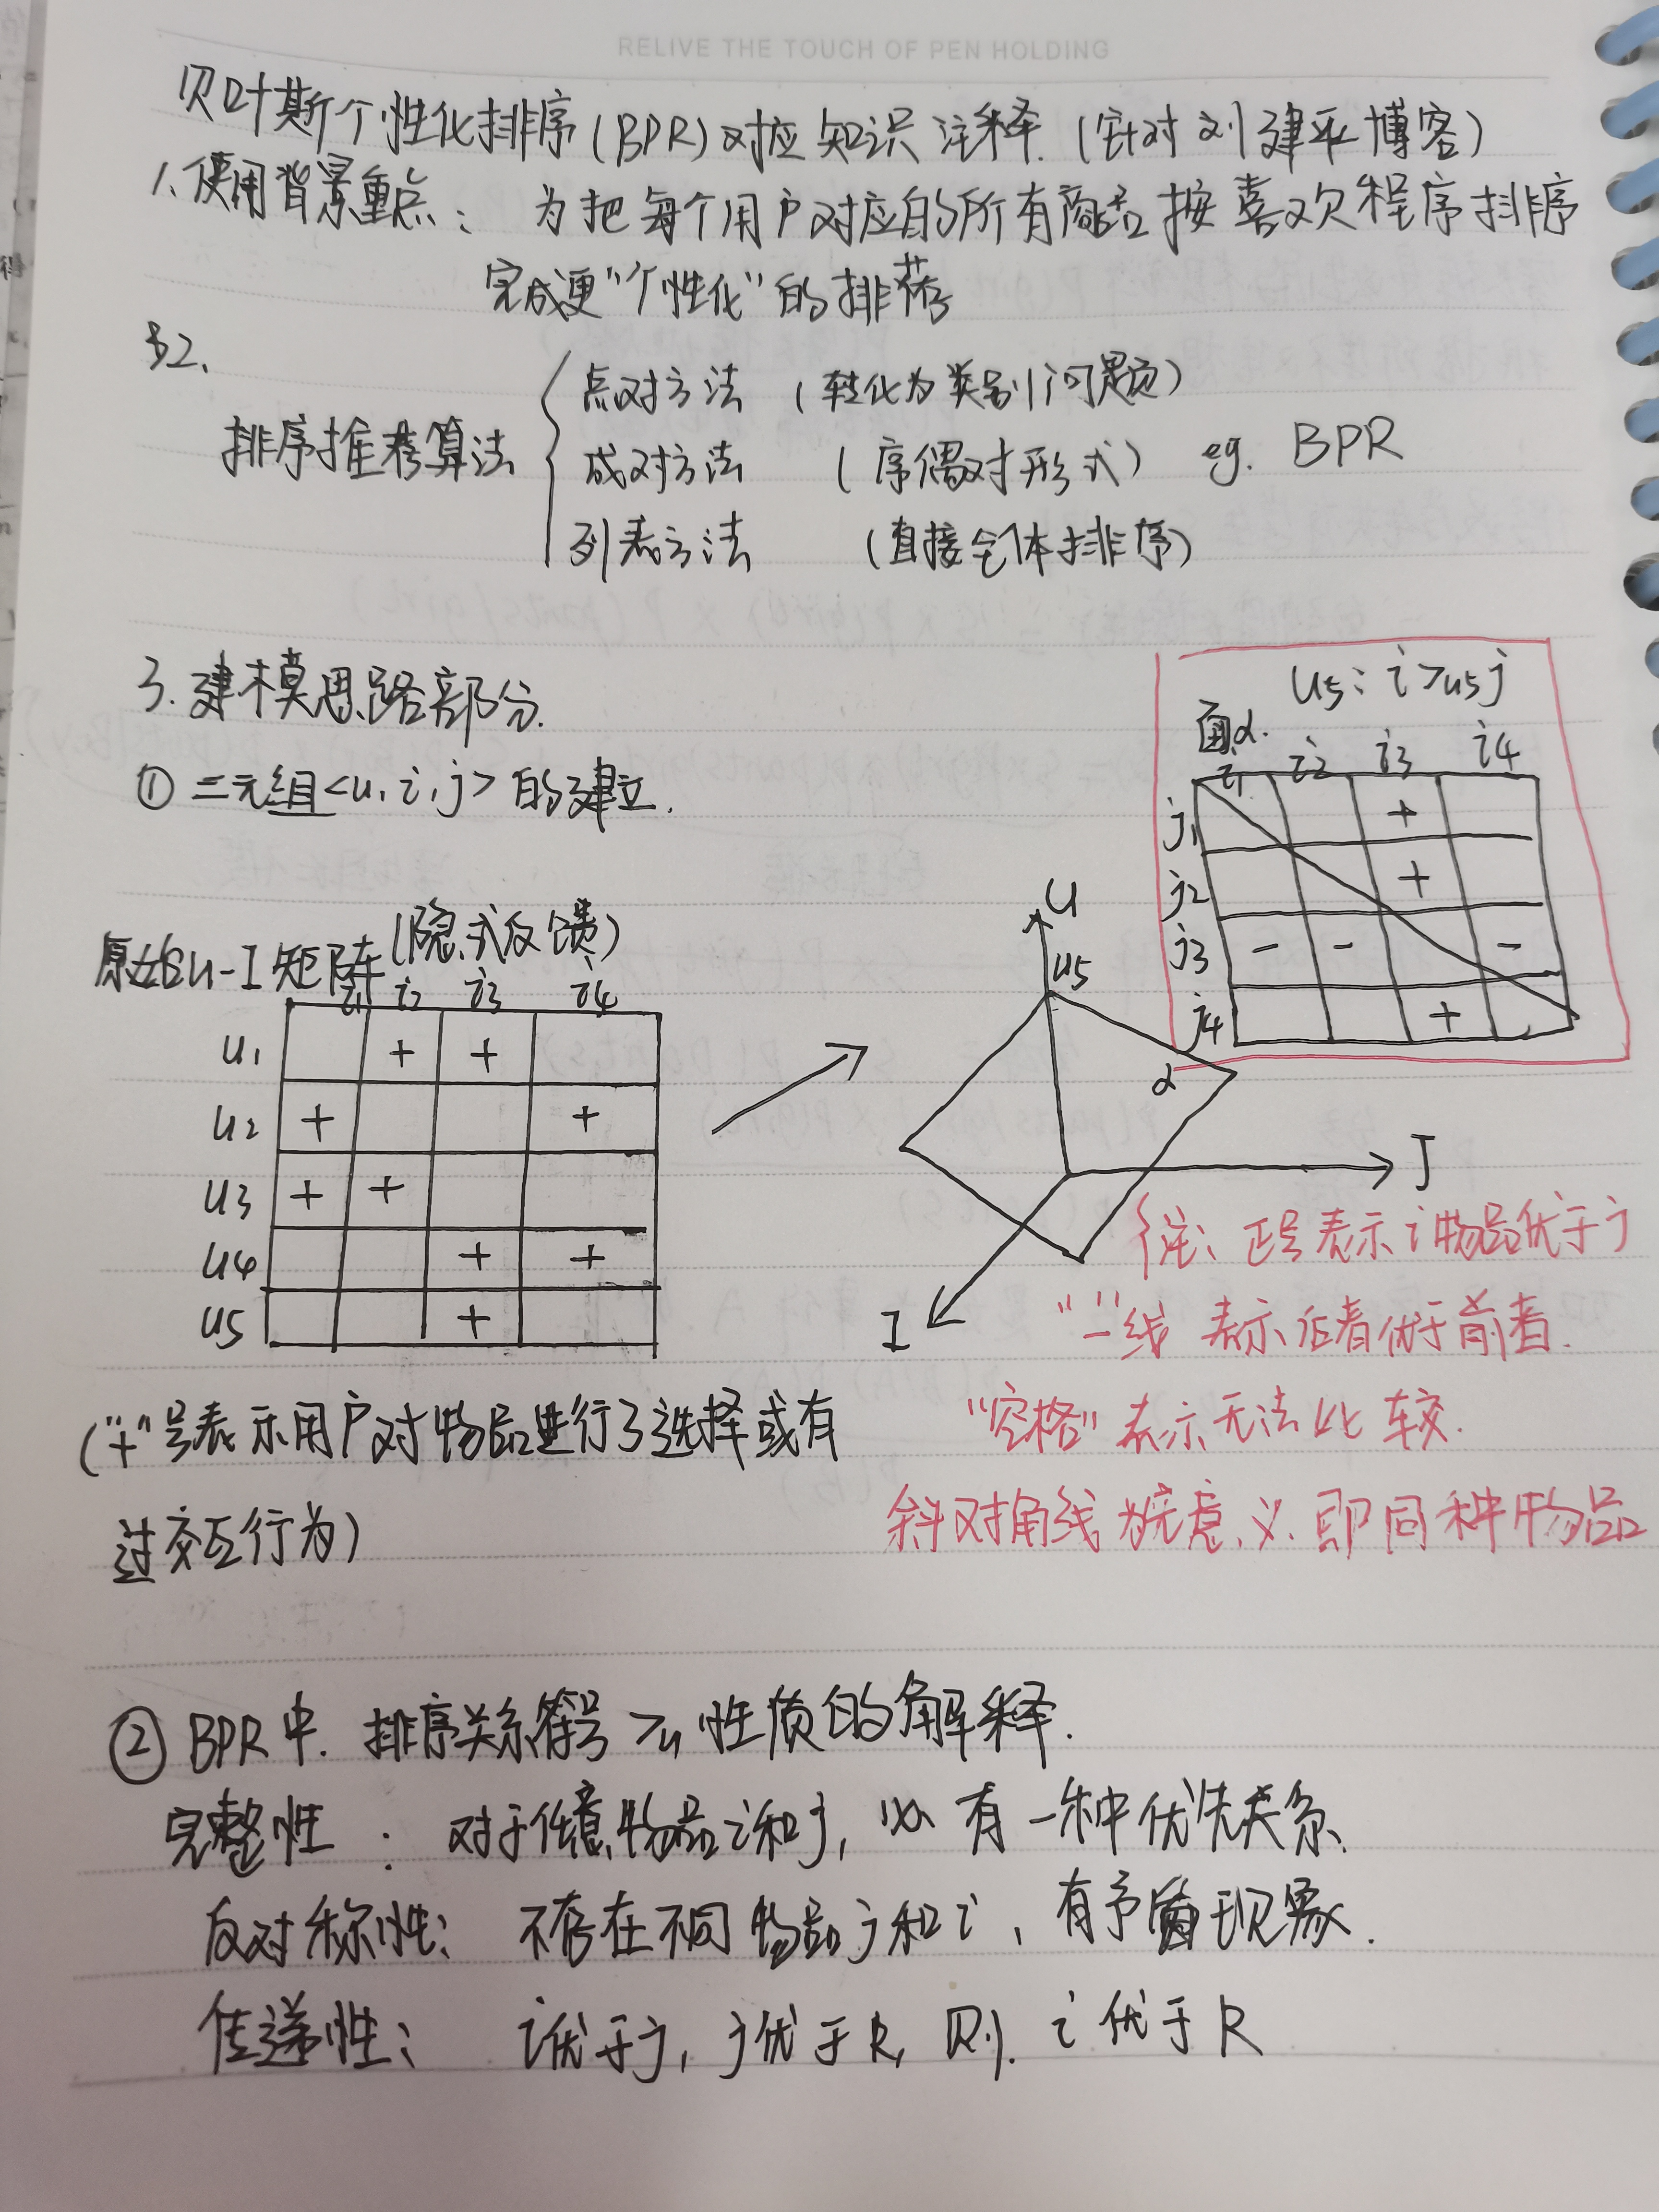 RELIVE THE TOUCH OF PEN HOLDING
贝叶斯个性化排序(BPR)对应知识注释.(针对刘建平博客)
1.使用背景重点: 为把每个用户对应的所有商品按喜欢程序排序
完成更"个性化"的排荐
2.
排序推荐算法
点对方法 (转化为类别问题)
成对方法 (序偶对形式) eg. BPR
列表方法 (直接全体排序)
3.建模思路部分.
① 三元组<u,i,j>的建立.
原始U-I矩阵(隐式反馈)
i1 i2 i3 i4
u1 + +
u2 + +
u3 + +
u4 + +
u5 +
("+"号表示用户对物品进行了选择或有
过交互行为)
U
u5
α
J
I
u5: i >u5 j
面α.
i1 i2 i3 i4
j1 +
j2 +
j3 - - -
j4 +
注: 正号表示i物品优于j
"-"线 表示后者优于前者.
"空格"表示无法比较.
斜对角线为无意义.即同种物品
② BPR中.排序关系符号 >u 性质的解释.
完整性: 对于任意物品i和j, 必有一种优先关系.
反对称性: 不存在不同物品j和i, 有矛盾现象.
传递性: i优于j, j优于k, 则.i优于k